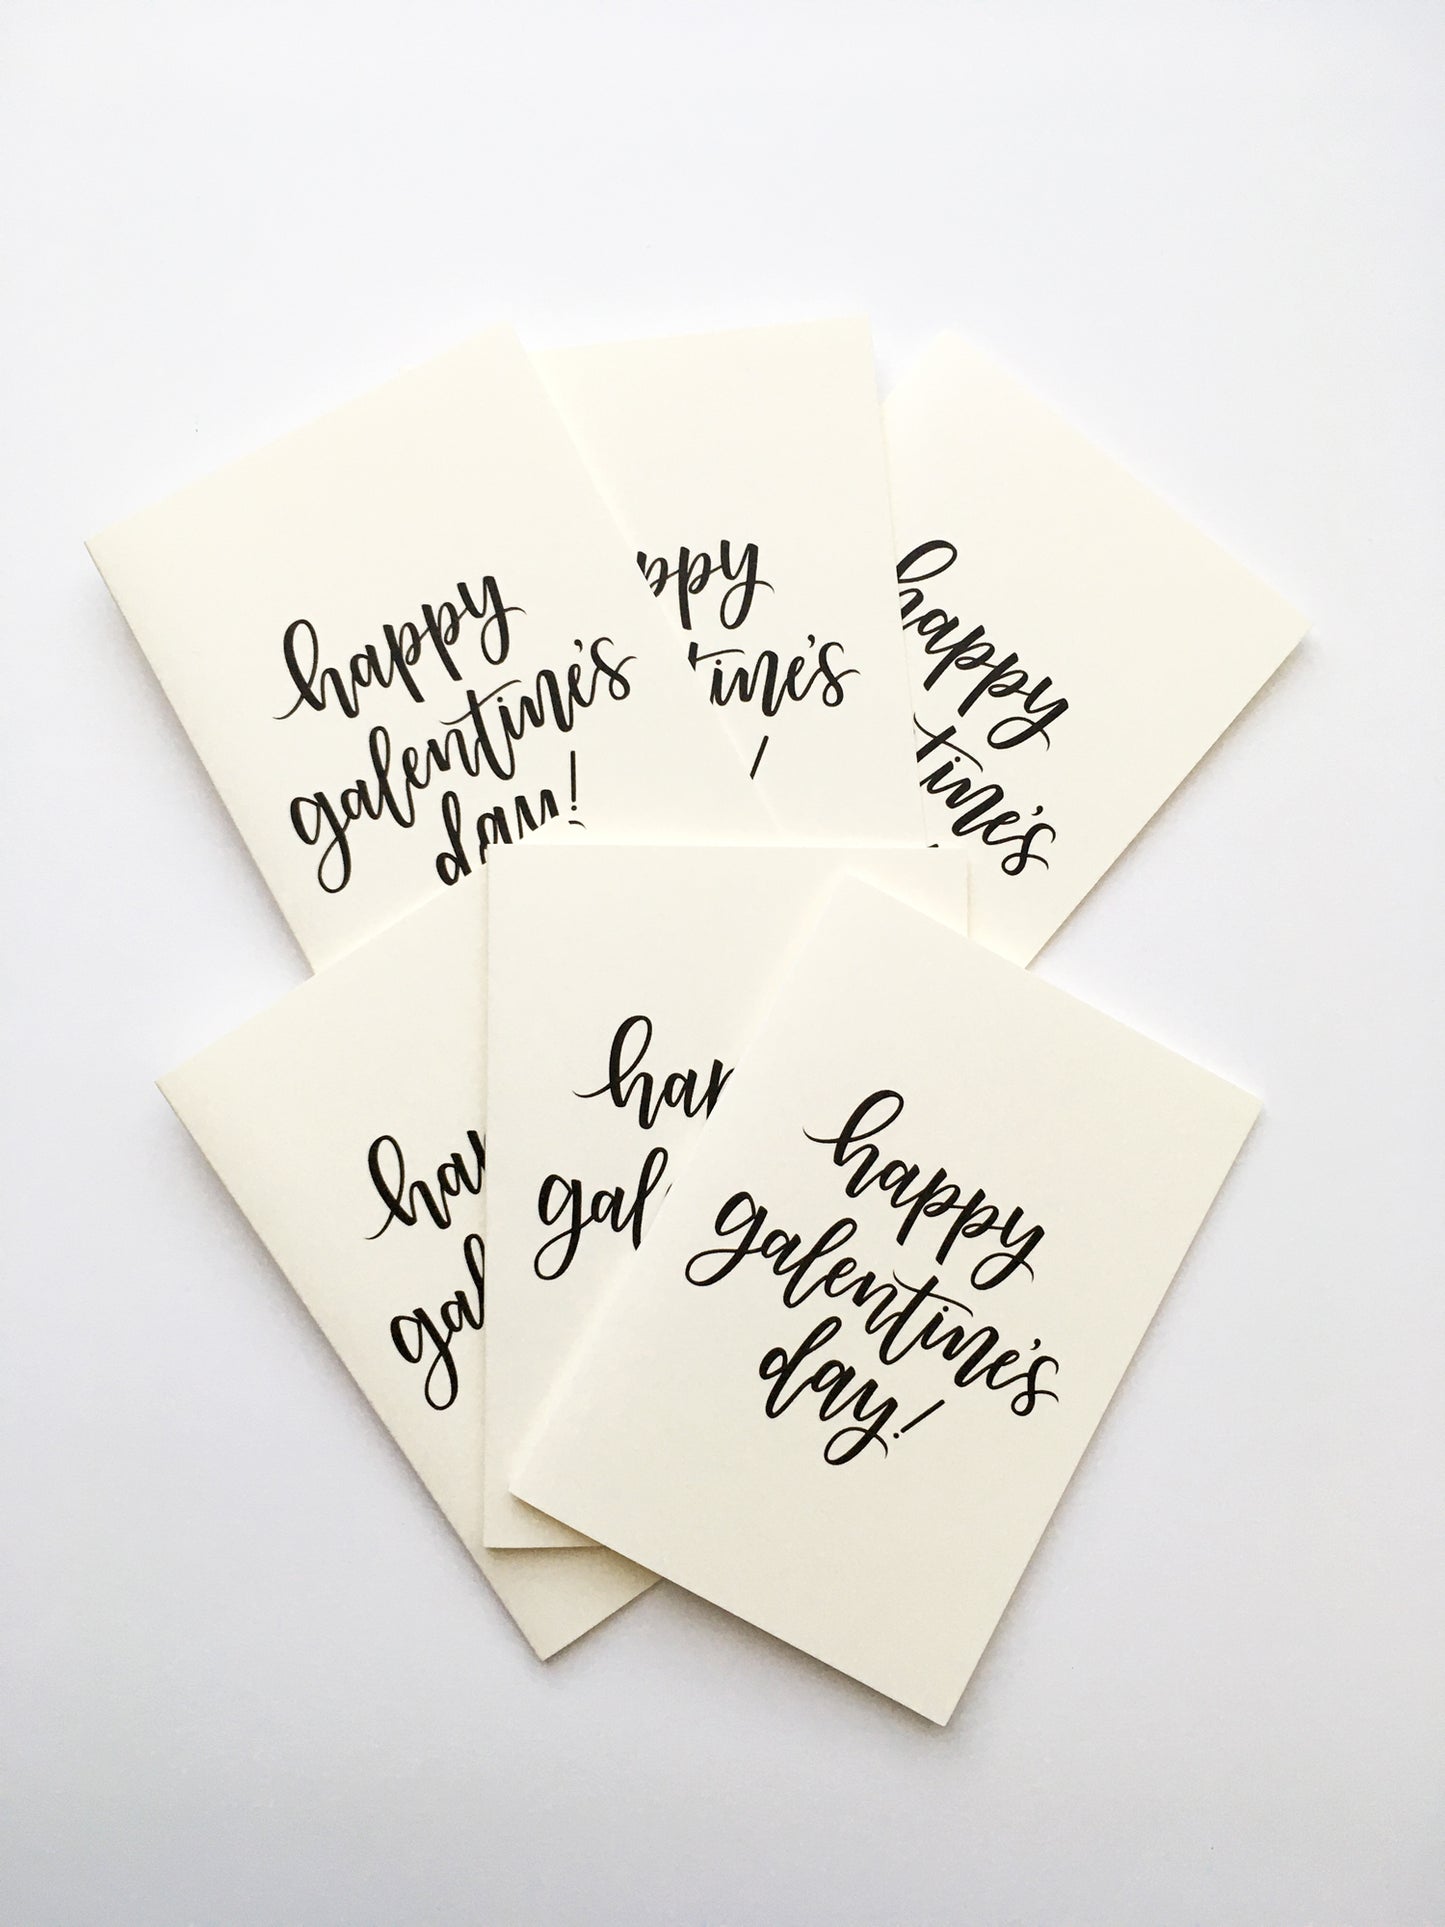 happy
galentine's
day!
ppy
tine's
!
happy
tine's
hap
gal
hap
gal
happy
galentine's
day!